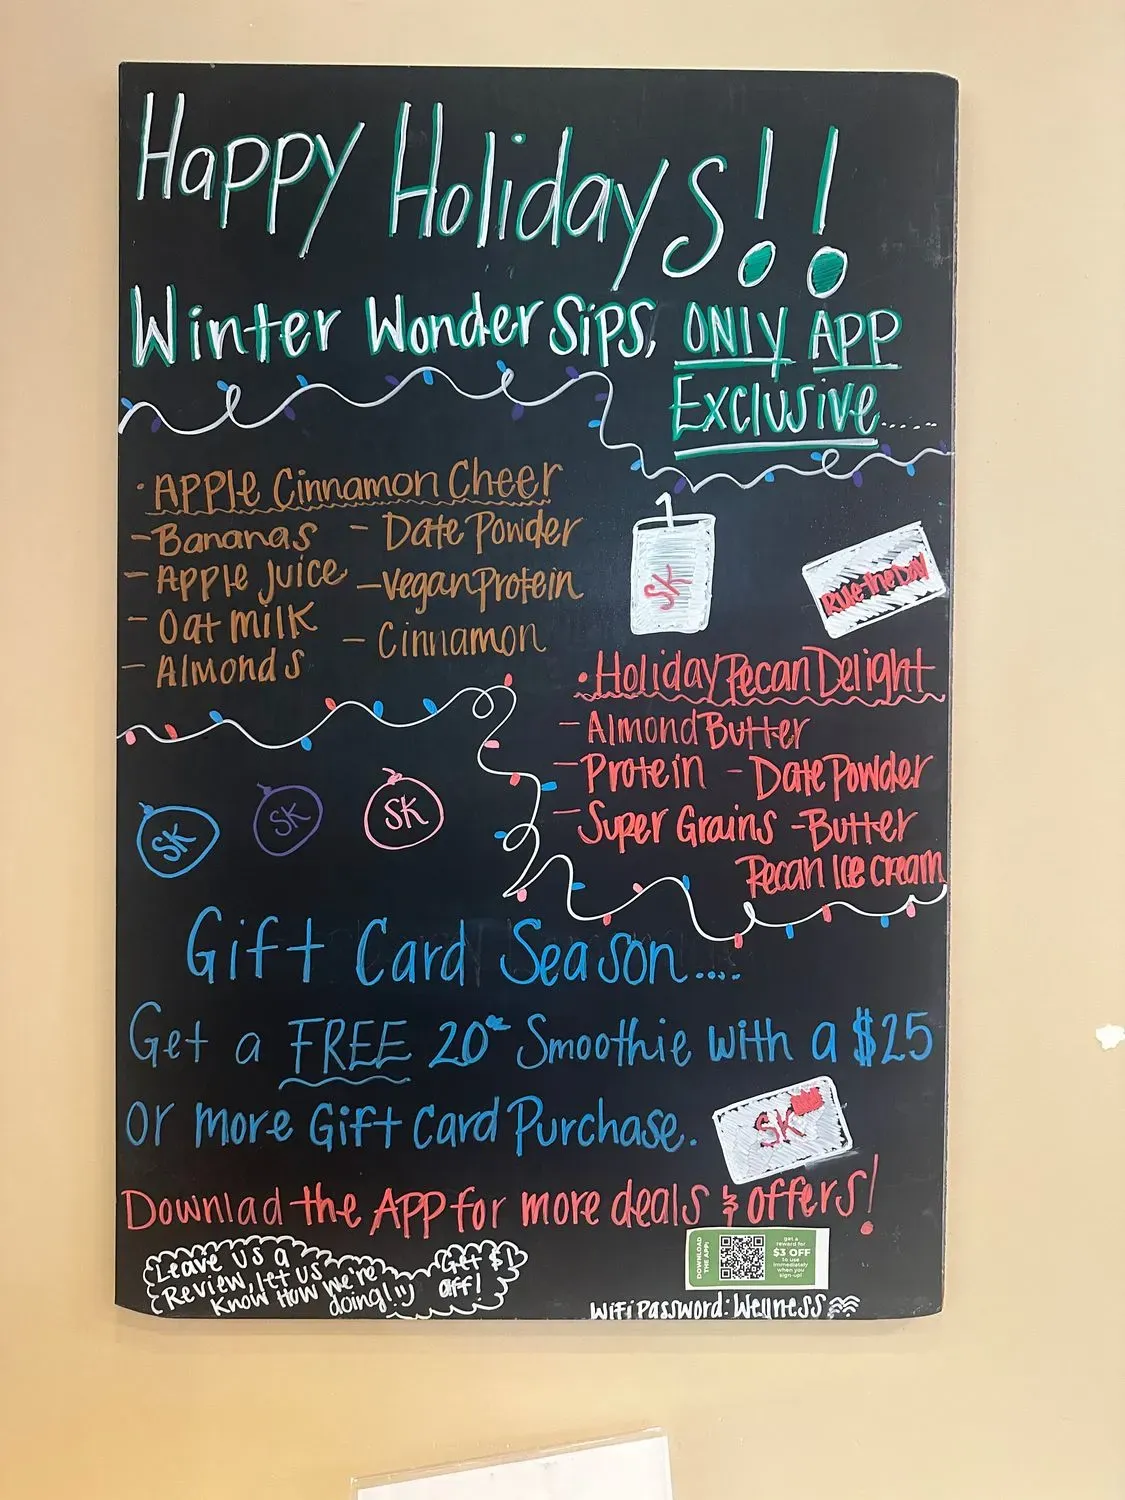 Happy Holidays!!
Winter Wonder Sips, ONLY APP
Exclusive.....
· APPlE Cinnamon Cheer
- Bananas - Date Powder
- Apple Juice - Vegan Protein
- Oat milk - Cinnamon
- Almonds
SK
Rule the Day
· Holiday Pecan Delight
- Almond Butter
- Protein - Date Powder
- Super Grains - Butter
Pecan Ice cream
SK SK SK
Gift Card Season....
Get a FREE 20oz Smoothie with a $25
or more Gift Card Purchase.
SK
Downlad the APP for more deals & offers!
Leave us a
Review, let us
Know How we're
doing!
Get $1
off!
DOWNLOAD
THE APP!
get a
reward for
$3 OFF
to use
immediately
when you
sign-up!
WiFi Password: Wellness